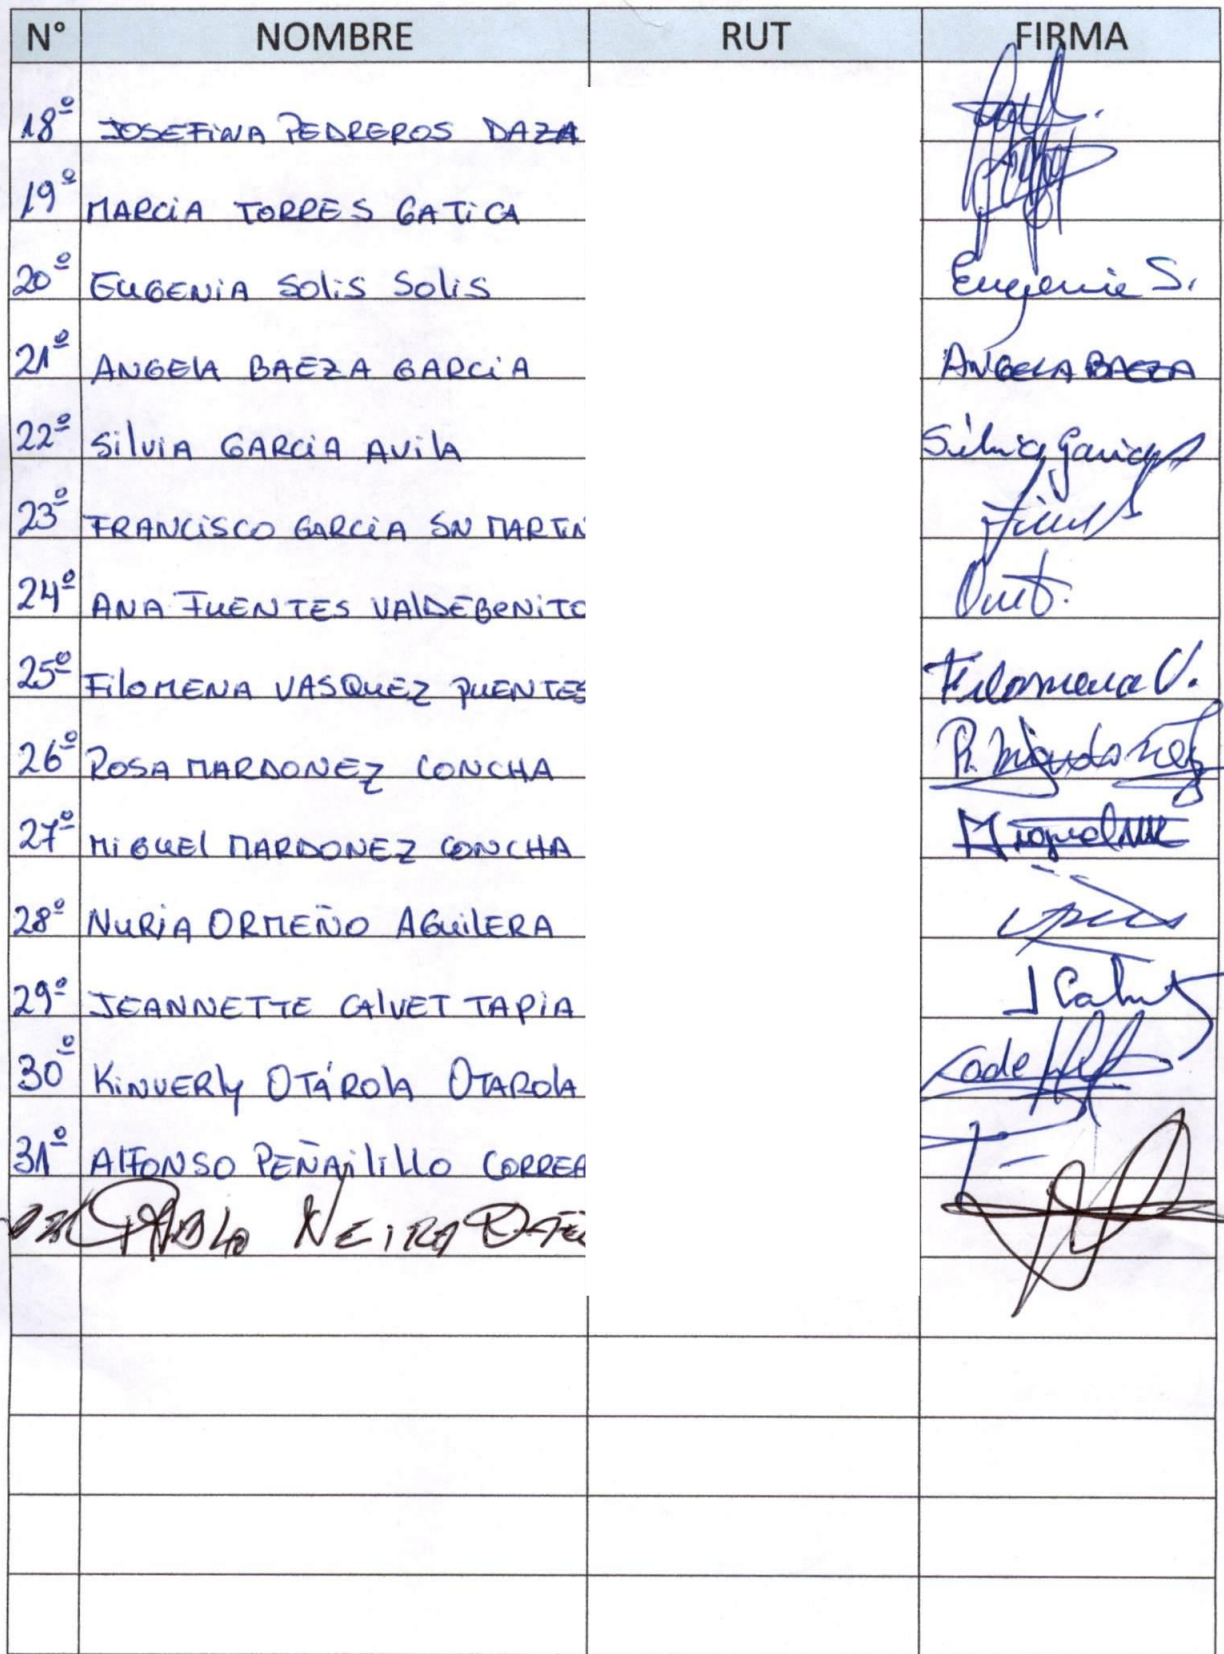 N° NOMBRE RUT FIRMA
18º JOSEFINA PEDREROS DAZA
19º MARCIA TORRES GATICA
20º EUGENIA SOLIS SOLIS Eugenia S.
21º ANGELA BAEZA GARCIA ANGELA BAEZA
22º SILVIA GARCIA AVILA Silvia Garcia
23º FRANCISCO GARCIA SN MARTIN
24º ANA FUENTES VALDEBENITO
25º FILOMENA VASQUEZ PUENTES Filomena V.
26º ROSA MARDONEZ CONCHA R. Mardonez
27º MIGUEL MARDONEZ CONCHA Miguel
28º NURIA ORMEÑO AGUILERA
29º JEANNETTE CALVET TAPIA J Calvet
30º KINVERLY OTÁROLA OTAROLA
31º ALFONSO PEÑAILILLO CORREA
PABLO NEIRA